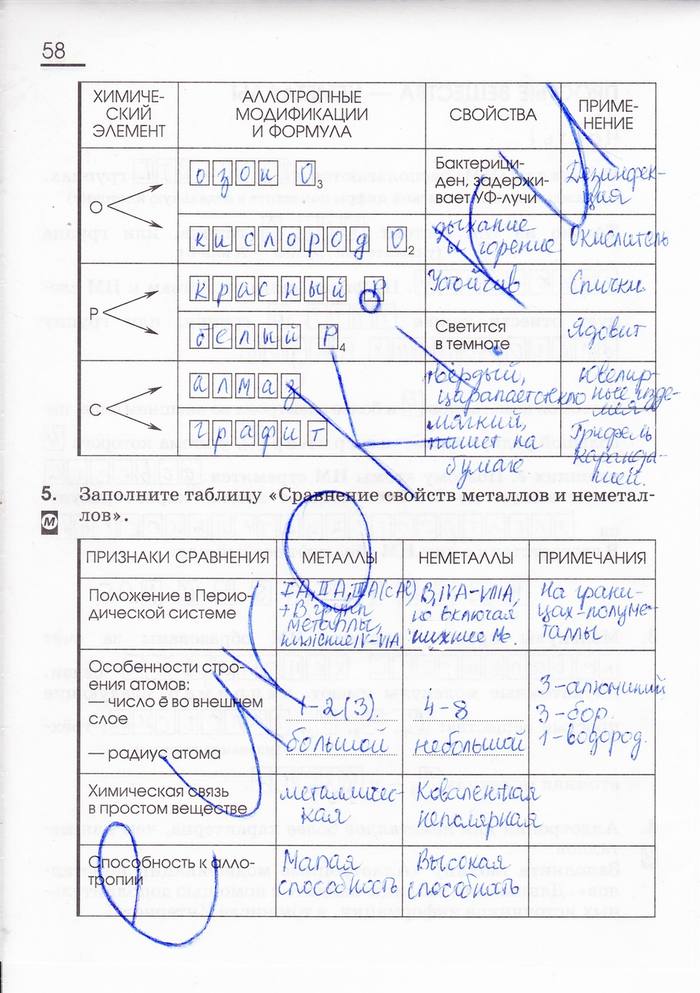 58
ХИМИЧЕ-
СКИЙ
ЭЛЕМЕНТ
АЛЛОТРОПНЫЕ
МОДИФИКАЦИИ
И ФОРМУЛА
СВОЙСТВА
ПРИМЕ-
НЕНИЕ
O
озон O3
Бактерици-
ден, задержи-
вает УФ-лучи
Дезинфек-
ция
кислород O2
дыхание
и горение
Окислитель
P
красный P
Устойчив
Спички.
белый P4
Светится
в темноте
Ядовит
C
алмаз
твёрдый,
царапает стекло
Ювелир-
ные изде-
лия
графит
мягкий,
пишет на
бумаге
Грифель
каранда-
шей.
5. Заполните таблицу «Сравнение свойств металлов и неметал-
М лов».
ПРИЗНАКИ СРАВНЕНИЯ
МЕТАЛЛЫ
НЕМЕТАЛЛЫ
ПРИМЕЧАНИЯ
Положение в Перио-
дической системе
IA, IIA, IIIA (с Al)
+ B групп
металлы,
нижние IV-VIIA,
B, IVA-VIIIA,
не включая
нижние Me.
На грани-
цах-полуме-
таллы
Особенности стро-
ения атомов:
— число ē во внешнем
слое
1-2(3).
4-8
3-алюминий
3-бор,
1-водород.
— радиус атома
большой
небольшой
Химическая связь
в простом веществе
металличес-
кая
Ковалентная
неполярная
Способность к алло-
тропии
Малая
способность
Высокая
способность